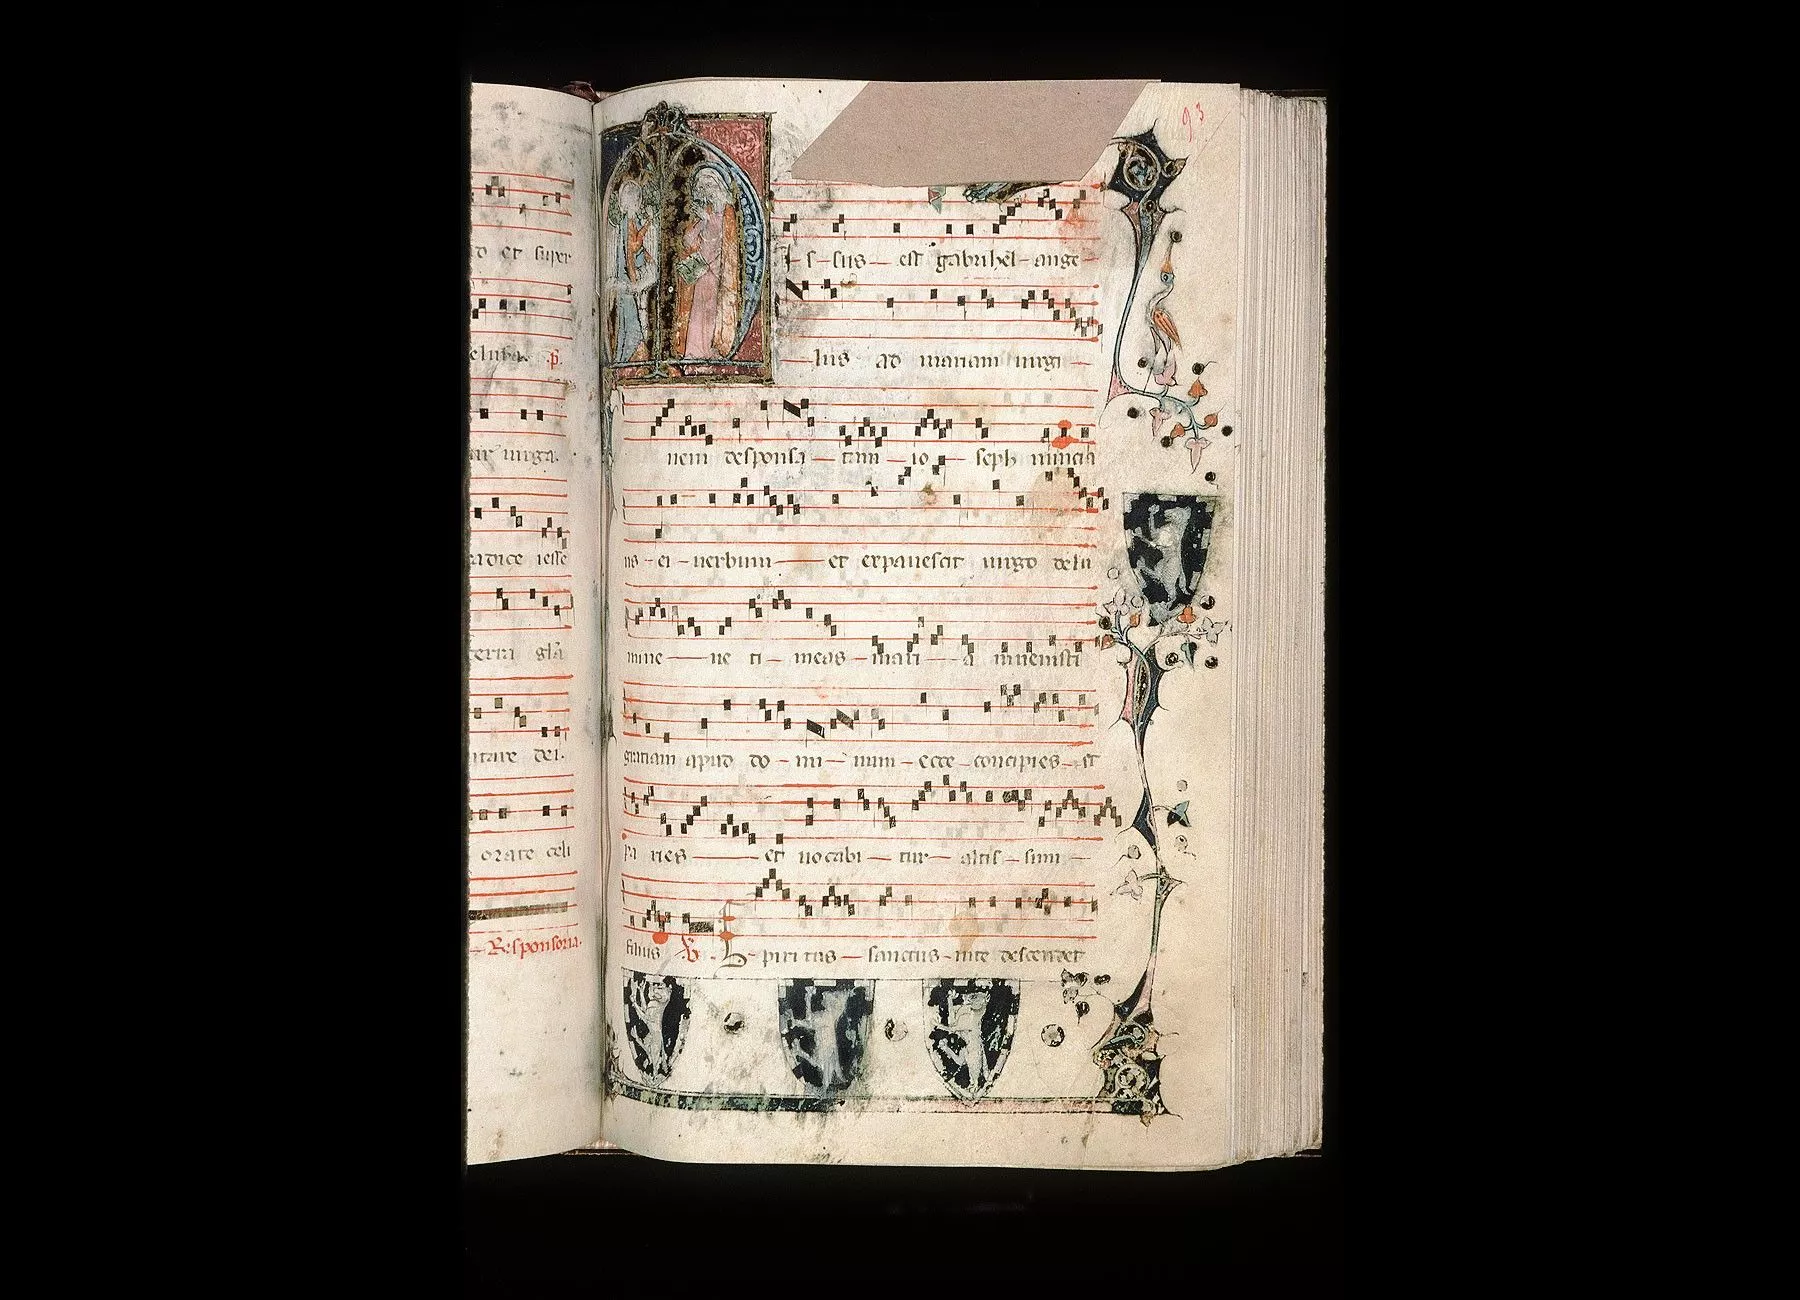 o et super
eluba. p.
ar uirga.
radice iesse
terrn gla
ntare dei.
orate celi
Responsoria.
93
s-sus est gabrihel ange
lus ad mariam uirgi
nem desponsatam ioseph nuncia
ns ei uerbum et expauescit uirgo delu
mine ne timeas maria inuenisti
gratiam apud dominum ecce concipies et
pa ries et uocabitur altissimi
filius V. Spiritus sanctus inte descendet